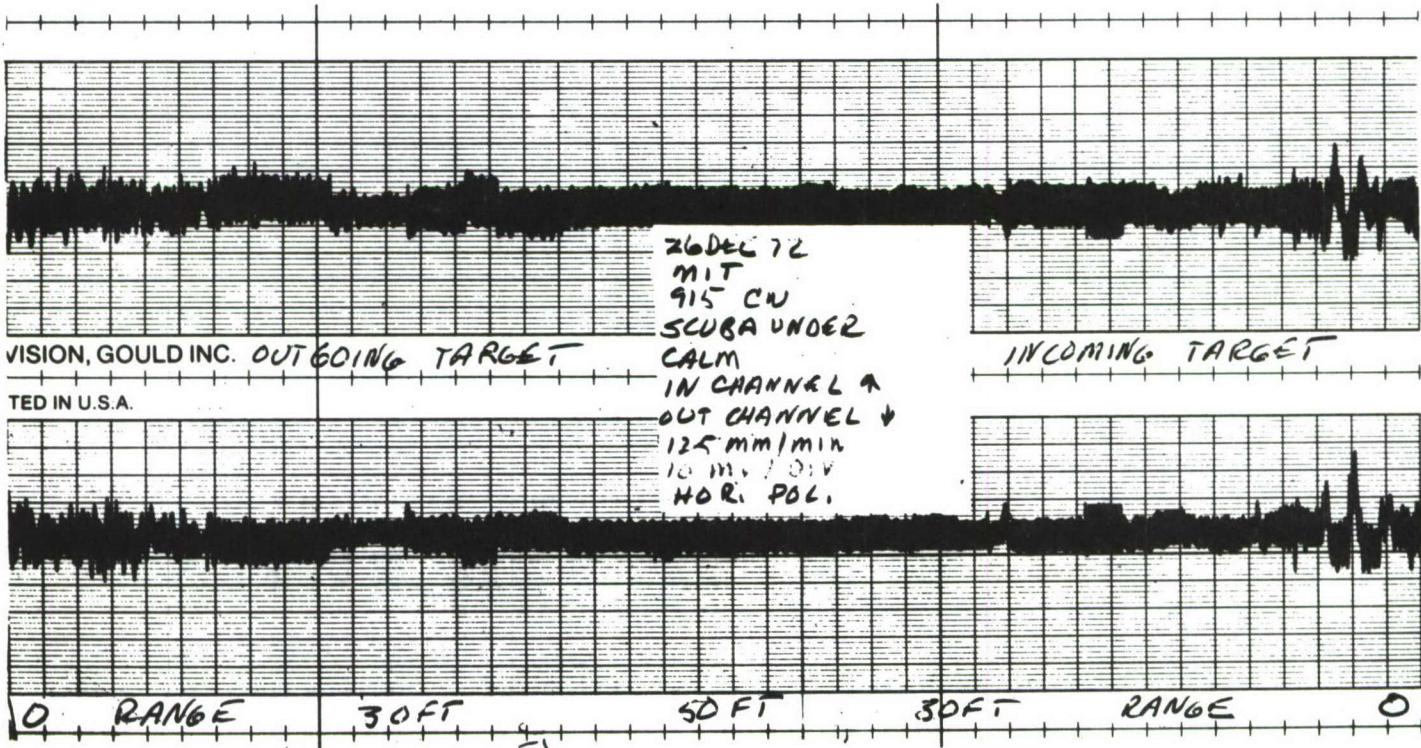 26 DEC 72
MIT
915 CW
SCUBA UNDER
CALM
IN CHANNEL ↑
OUT CHANNEL ↓
125 mm/min
10 mv / DIV
HOR. POL.
VISION, GOULD INC. OUTGOING TARGET
INCOMING TARGET
TED IN U.S.A.
0 RANGE 30FT 50FT 30FT RANGE 0